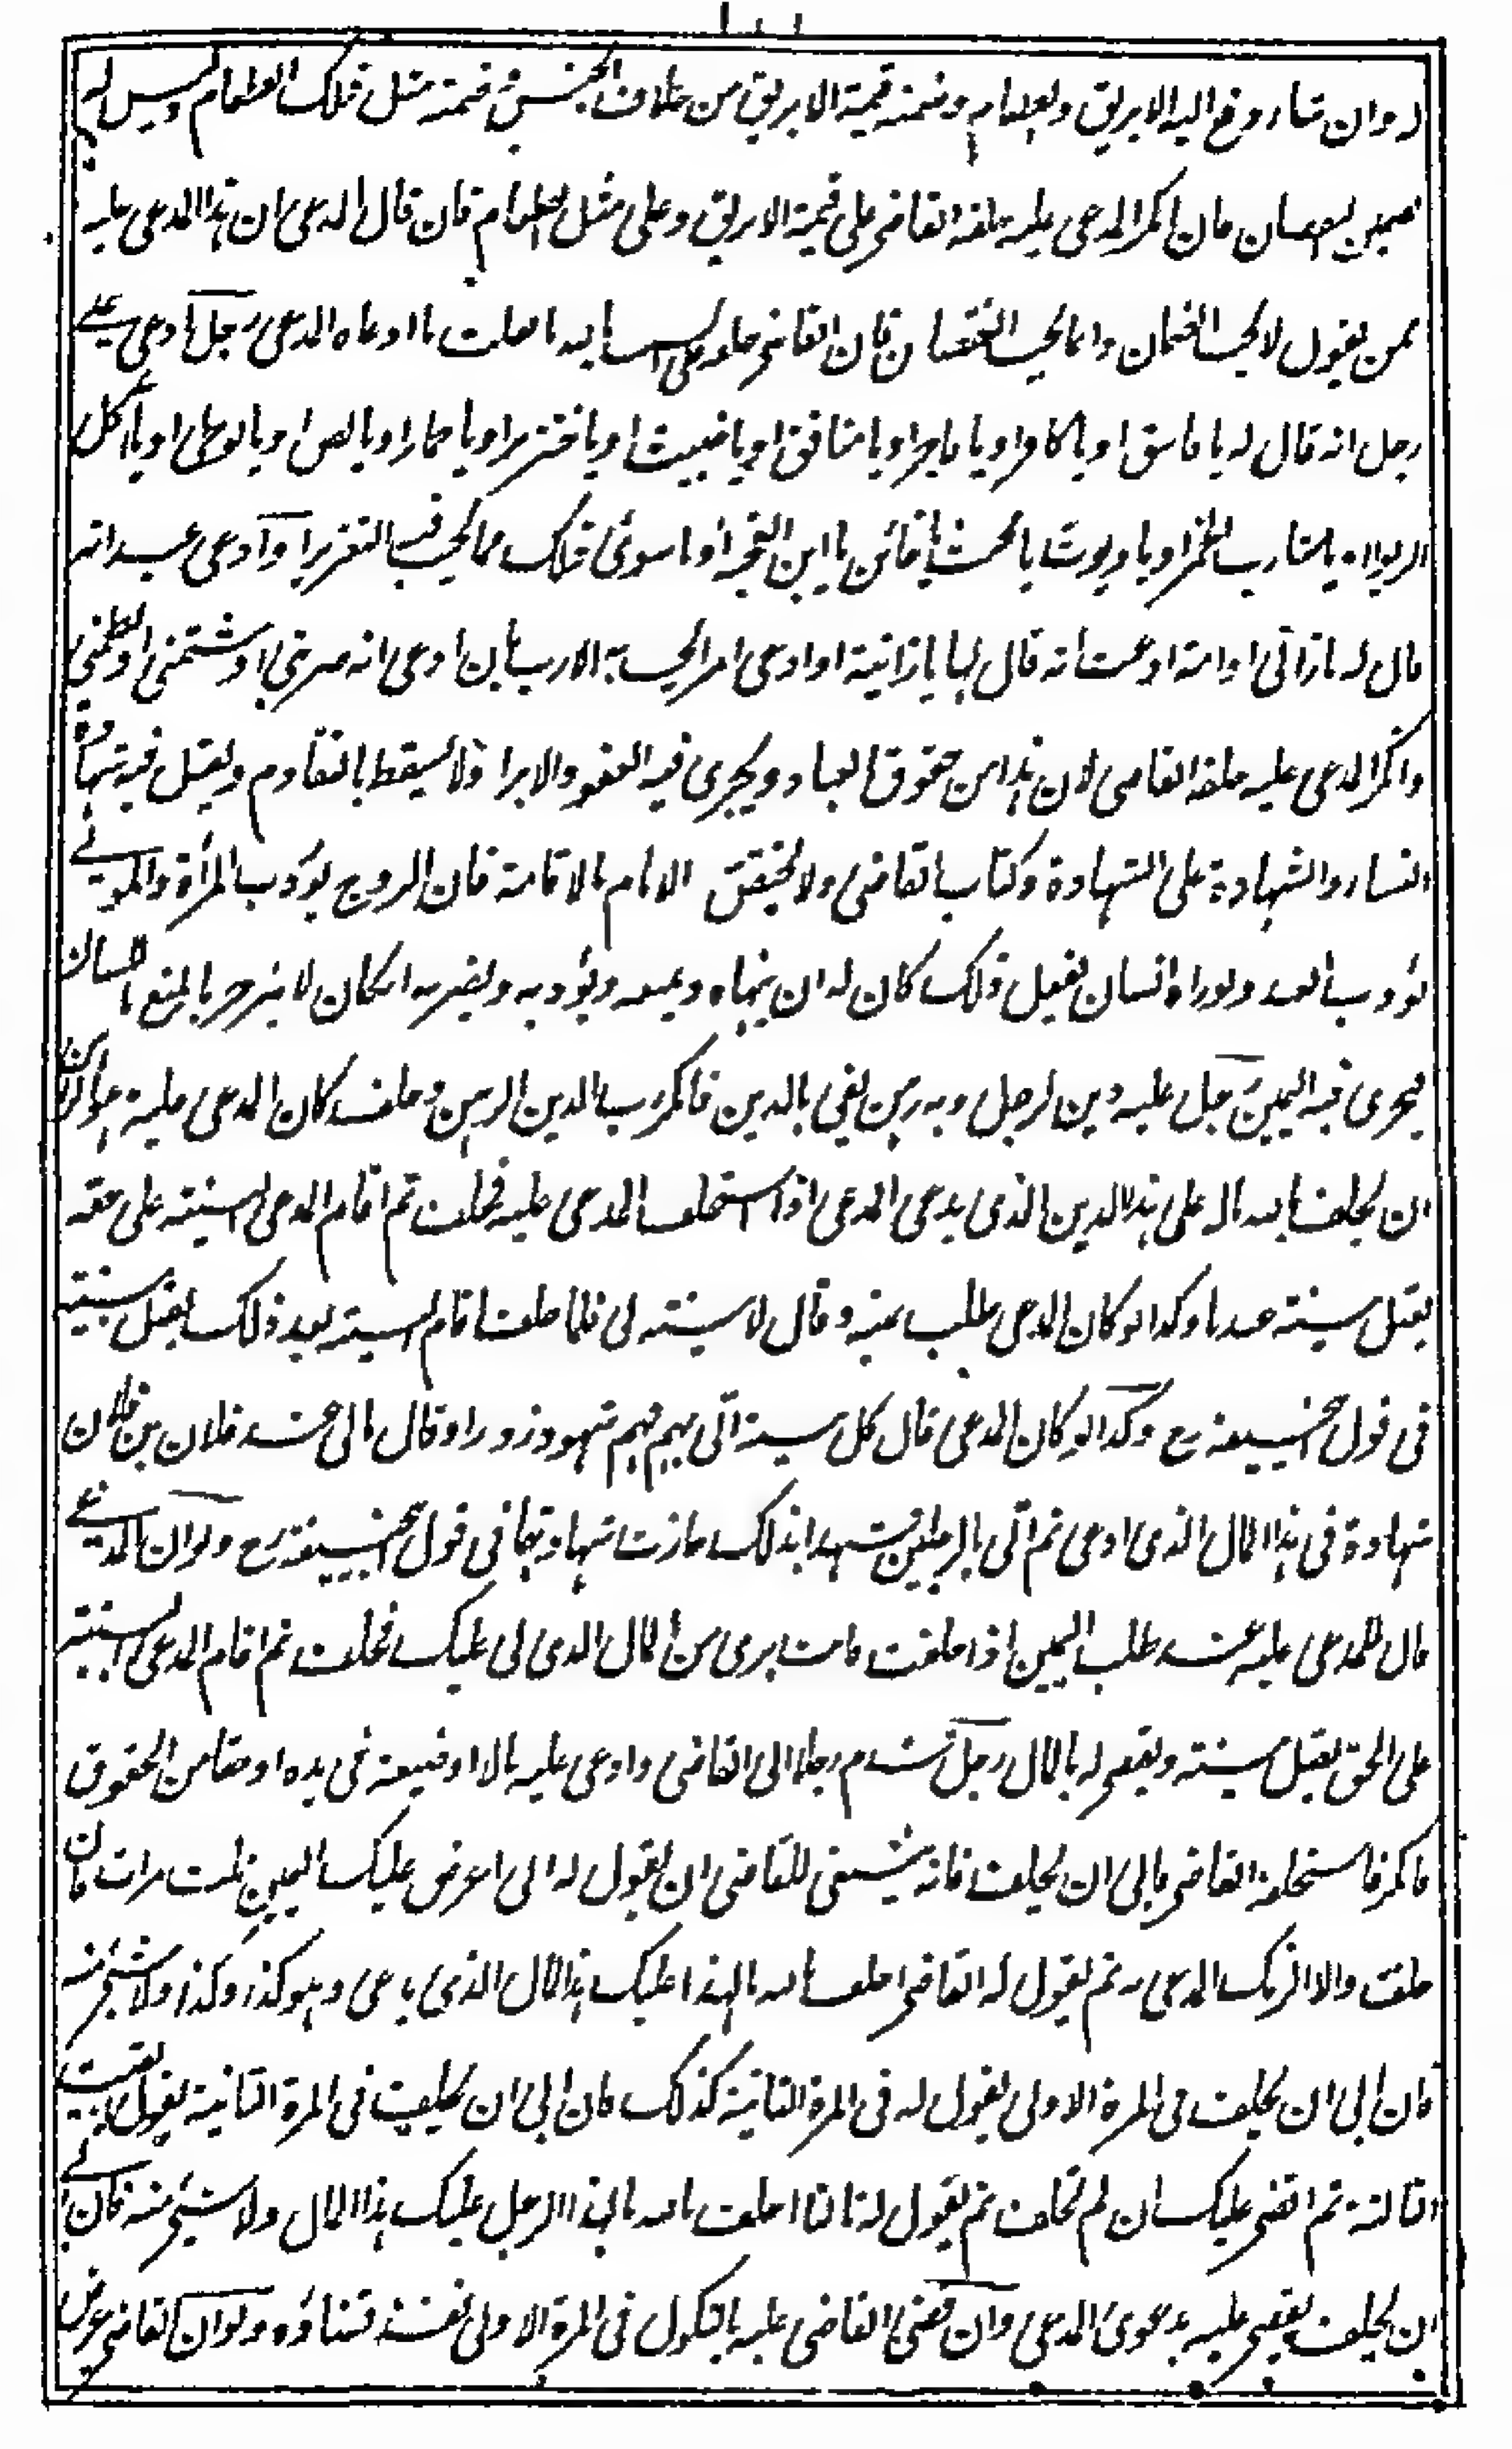 له وان شاء دفع اليه الابريق والطعام وضمنه قيمة الابريق من خلاف الجنس وقيمة مثل ذلك الطعام وليس له
تضمين النقصان فان انكر المدعى عليه حلفه القاضي على قيمة الابريق وعلى مثل الطعام فان قال المدعى ان هذا المدعى عليه
ممن يقول لا يجب الضمان وانما يجب النقصان فان القاضي حلفه على السبب بالله ما فعلت ما ادعاه المدعى رجل ادعى على
رجل انه قال له يا فاسق او يا كافر او يا فاجر او يا منافق او يا خبيث او يا خنزير او يا حمار او يا لص او يا لوطى او يا آكل
الربوا او يا شارب الخمر او يا ديوث يا مخنث يا خائن يا ابن القحبة او ما سوى ذلك مما يجب فيه التعزير او ادعى عبد انه
قال له يا زانى او امة ادعت انه قال لها يا زانية او ادعى امرا يجب به الادب بان ادعى انه ضربنى او شتمنى او لطمنى
وانكر المدعى عليه حلفه القاضى لان هذا من حقوق العباد ويجرى فيه العفو والابراء ولا يسقط بالتقادم ويقبل فيه شهادة
النساء والشهادة على الشهادة وكتاب القاضى ولا يختص الامام بالاقامة فان الزوج يؤدب المرأة والمولى
يؤدب العبد ولو راه انسان يفعل ذلك كان له ان ينهاه ويمنعه ويؤدبه ويضربه ان كان لا ينزجر بالمنع باللسان
فيجرى فيه اليمين رجل عليه دين لرجل وبه رهن يفى بالدين فانكر رب الدين الرهن وحلف كان المدعى عليه
ان يحلف بالله ما له على هذا الدين الذى يدعى المدعى اذا استحلف المدعى عليه فحلف ثم اقام المدعى البينة على حقه
يقبل بينته عندنا وكذا لو كان المدعى طلب يمينه وقال لا بينة لى فلما حلف اقام البينة بعد ذلك يقبل بينته
فى قول ابى حنيفة رح وكذا لو كان المدعى قال كل بينة اتى بهم فهم شهود زور او قال مالى عند فلان بن فلان
شهادة فى هذا المال الذى ادعى ثم اتى بالرجلين فشهدا بذلك جازت شهادتهما فى قول ابى حنيفة رح ولو ان المدعى
قال للمدعى عليه عند طلب اليمين اذا حلفت فانت برى من المال الذى لى عليك فحلف ثم اقام المدعى البينة
على الحق يقبل بينته ويقضى له بالمال رجل قدم رجلا الى القاضى وادعى عليه مالا او ضيعة فى يده او حقا من الحقوق
فانكر فاستحلفه القاضى فابى ان يحلف فانه ينبغى للقاضى ان يقول له انى اعرض عليك اليمين ثلث مرات فان
حلفت والا الزمتك المدعى به ثم يقول له القاضى احلف بالله ما لهذا عليك هذا المال الذى يدعى وهو كذا وكذا ولا شئ منه
فان ابى ان يحلف فى المرة الاولى يقول له فى المرة الثانية كذلك فان ابى ان يحلف فى المرة الثانية يقول بقيت
الثالثة ثم اقضى عليك ان لم تحلف ثم يقول له ثالثا احلف بالله ما لهذا الرجل عليك هذا المال ولا شئ منه فان ابى
ان يحلف يقضى عليه بدعوى المدعى وان قضى القاضى عليه بالنكول فى المرة الاولى نفذ قضاؤه ولو ان القاضى عرض